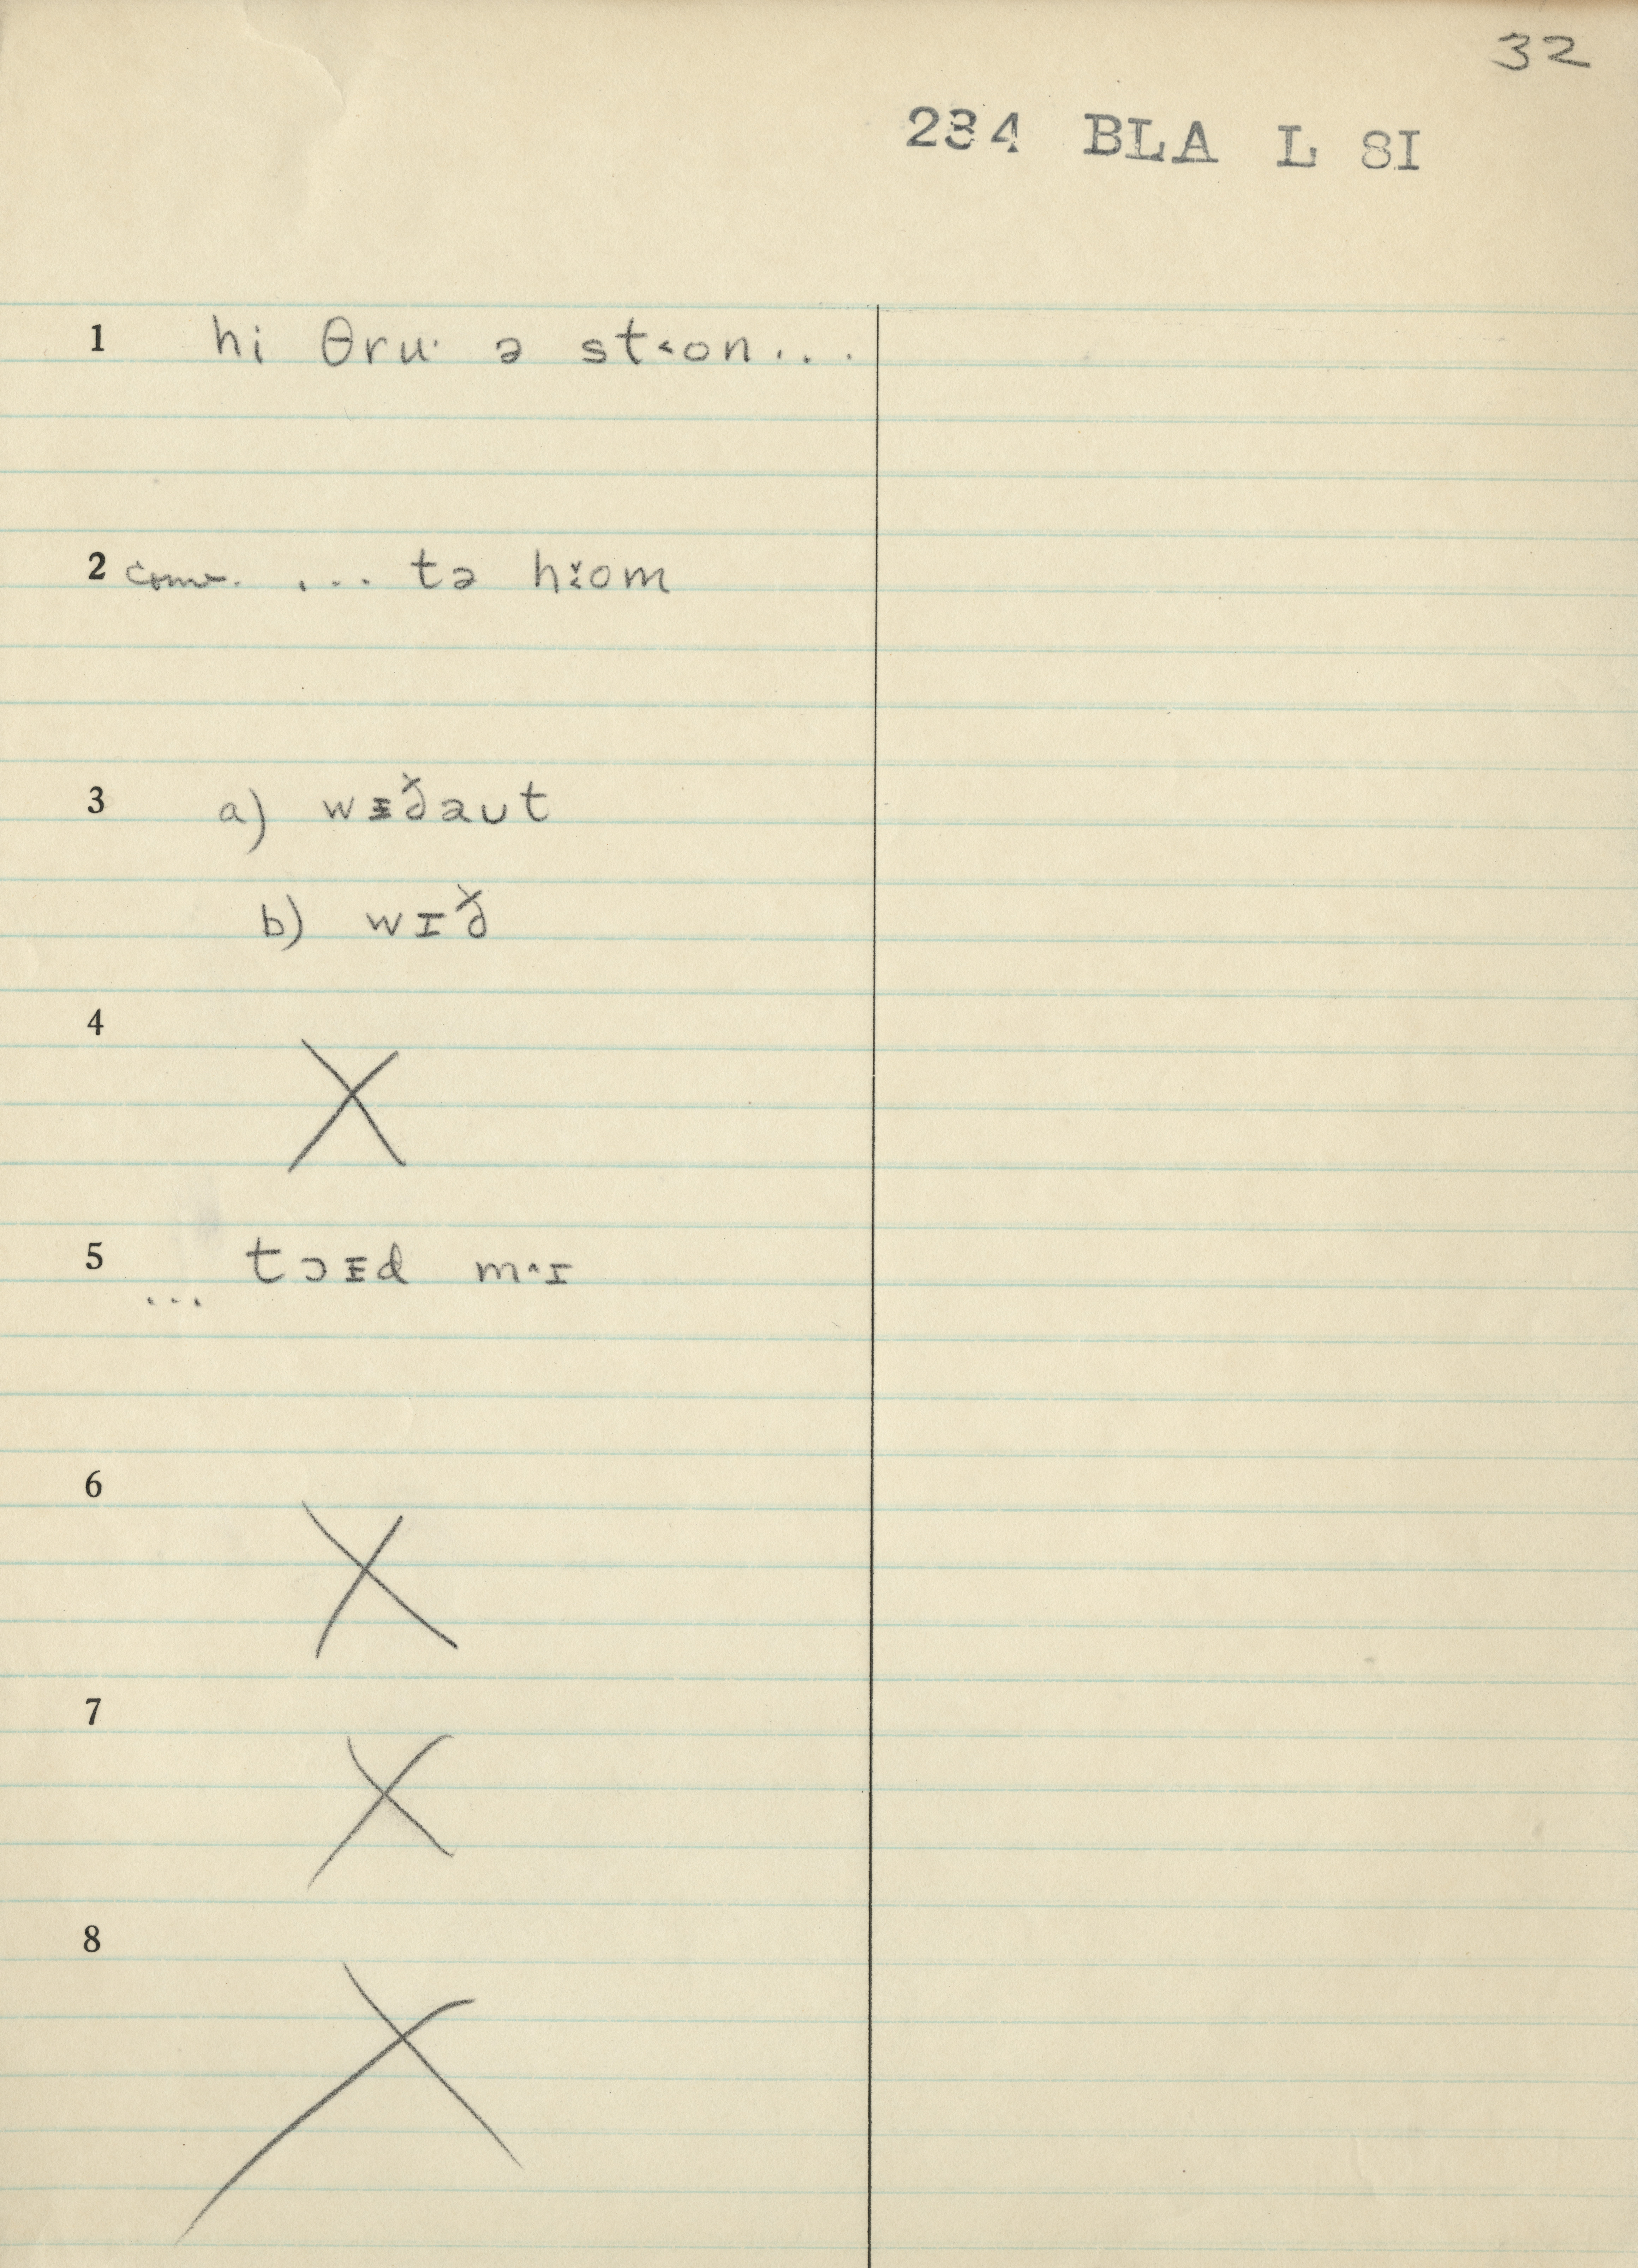 32
234 BLA L SI
1 hi θru· ə st˂on...
2 conv. ... tə hɪ̌om
3 a) wɪðəut
b) wɪð
4 X
5 ... tɔɪd m˄ɪ
6 X
7 X
8 X